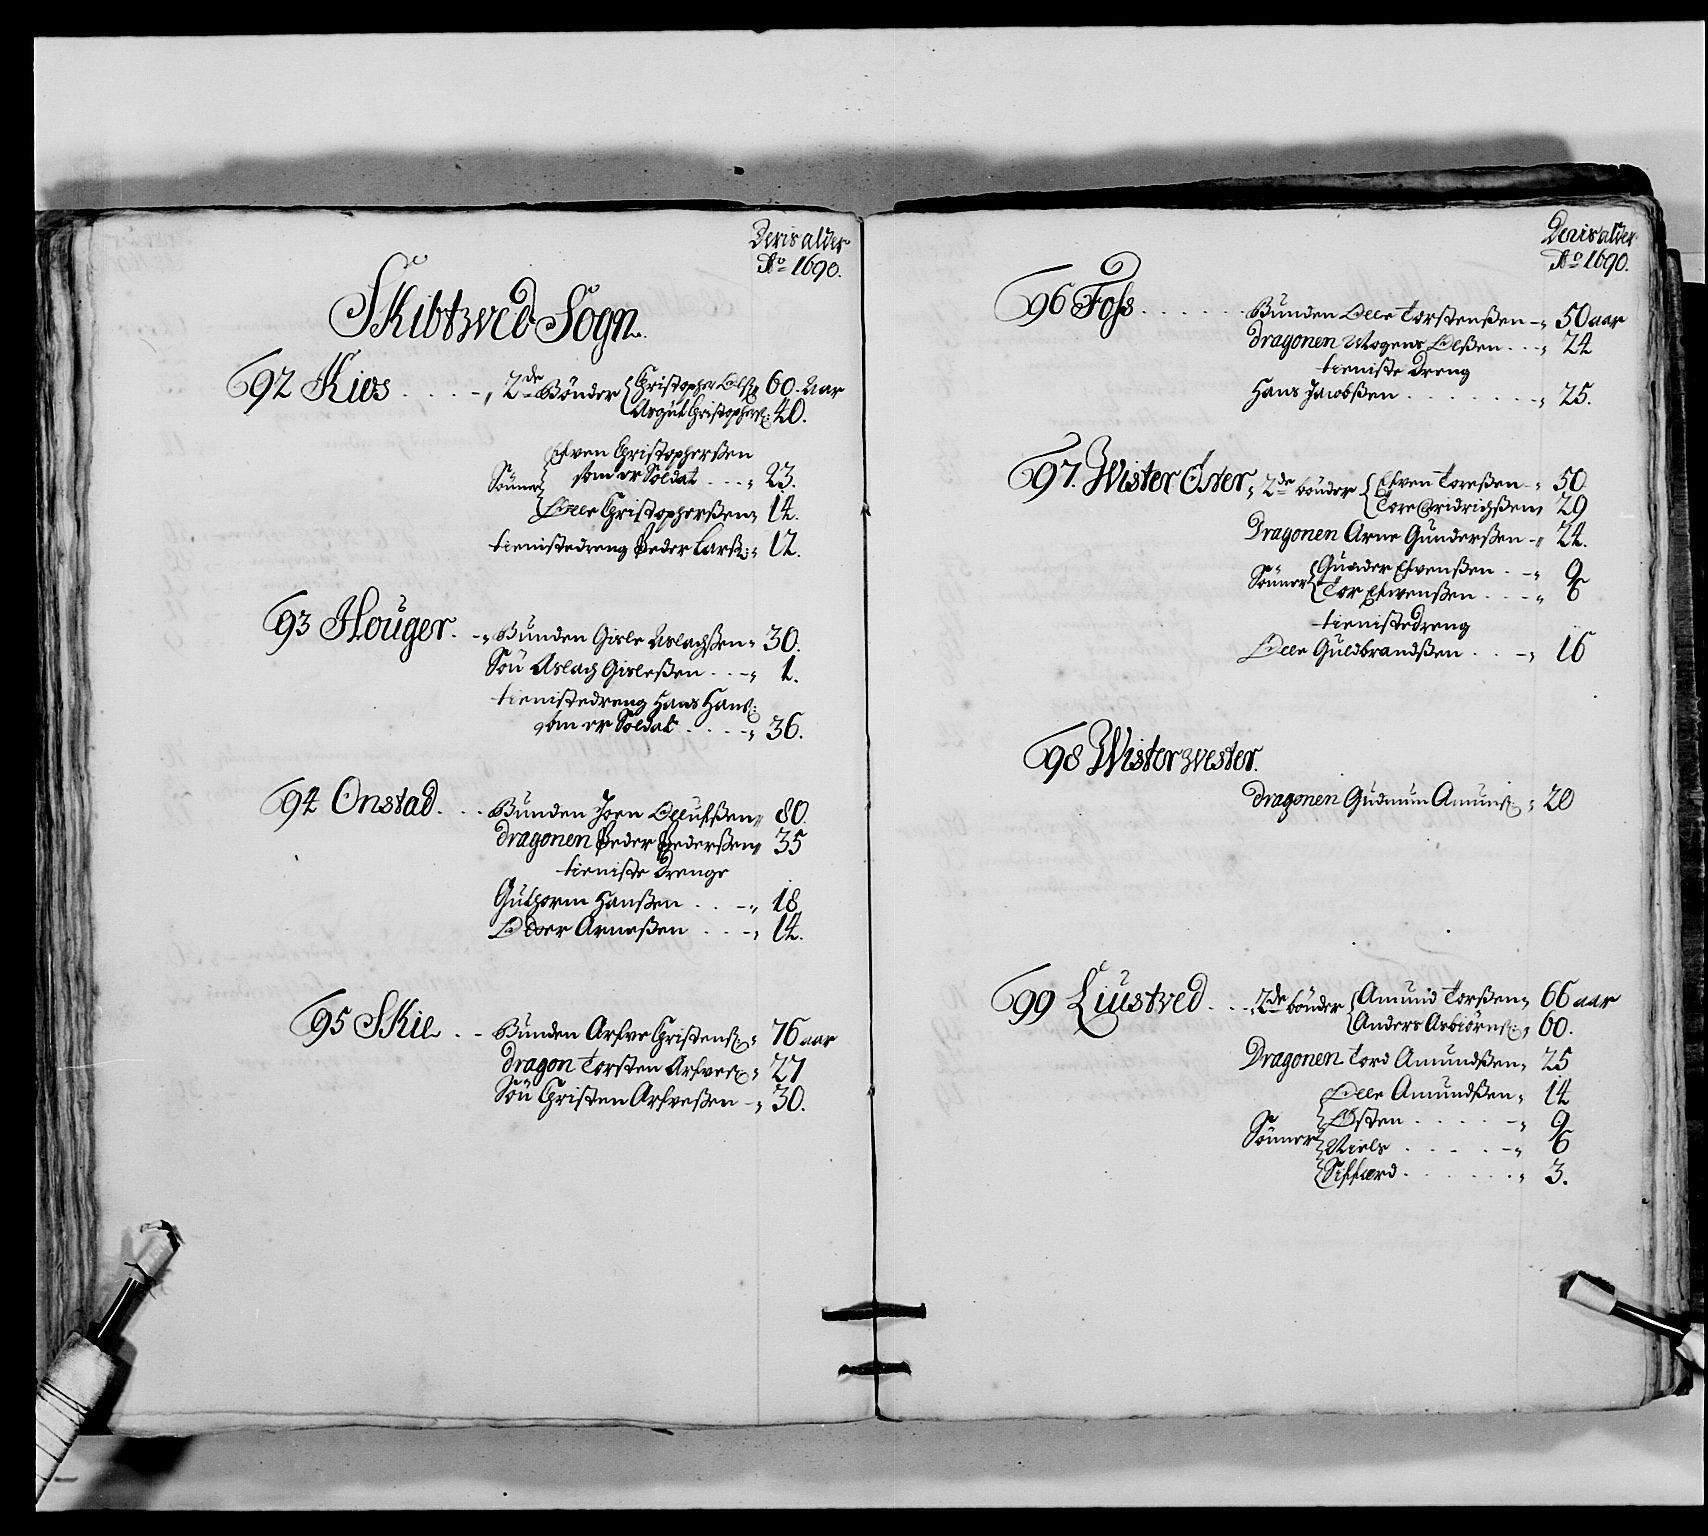 Deris alder
Ao 1690.
Skibtved Sogn.
92 Kios . . . . - „ 2de Bønder { Christopher Olss: 60. Aar
Asgut Christophers: 40.
Elven Christopherßen
som er Soldat . . . „ 23.
Sønner
Olle Christopherßen „ 14.
tienistedreng Peder Larß: „ 12.
93 Houger. - „ Bunden Gisle Aslachßen „ 30.
Søn Aslach Gisleßen . . - „ 1.
tienistedreng Hans Hans:
som er Soldat . . . . „ 36.
94 Onstad . . . Bunden Joen Ollufsßen „ 80.
dragonen Peder Pederßen „ 35
tieniste Drenge
Guthorm Hanßen . . - „ 18
Arneßen . . . - „ 14.
95 Skie . . - Bunden Arfve Christens: „ 76 aar
dragon Torsten Arfves: „ 27
Søn Christen Arfveßen - „ 30.
Deris alder
Ao 1690.
96 Foss . . . . . . Bunden Olle Torstenßen - „ 50 aar
dragonen Mogens Olßen . . - „ 24
tieniste Dreng
Hans Jacobßen . . . . . . . „ 25.
97. Wister Øster „ 2de bønder { Elven Toreßen - „ 50
Tore Fridrichßen „ 29
Dragonen Arne Gunderßen - „ 24.
Sønner { Gunder Elvenßen . - „ 9
Tor Elvenßen . . . - „ 6
tienistedreng
Olle Guldbrandßen . . - „ 16
98 Wister wester.
dragonen Gudmun Amuns: „ 20
99 Liustved . . . „ 2de bønder { Amund Torßen „ 66 aar
Anders Asbiørns: „ 60.
Dragonen Tord Amundßen „ 25
Olle Amundßen „ 14
Østen . . . . . - „ 9
Sønner { Niels . . . . . - „ 6
Siffverd . . . . . . . „ 3.